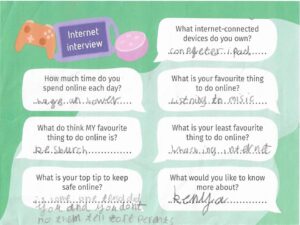 Internet
interview
What internet-connected
devices do you own?
computer iPad
How much time do you
spend online each day?
an hower
What is your favourite thing
to do online?
listning to music
What do think MY favourite
thing to do online is?
research
What is your least favourite
thing to online?
What is your top tip to keep
safe online?
you and you dont
no them tell your Parents
What would you like to know
more about?
Kenya